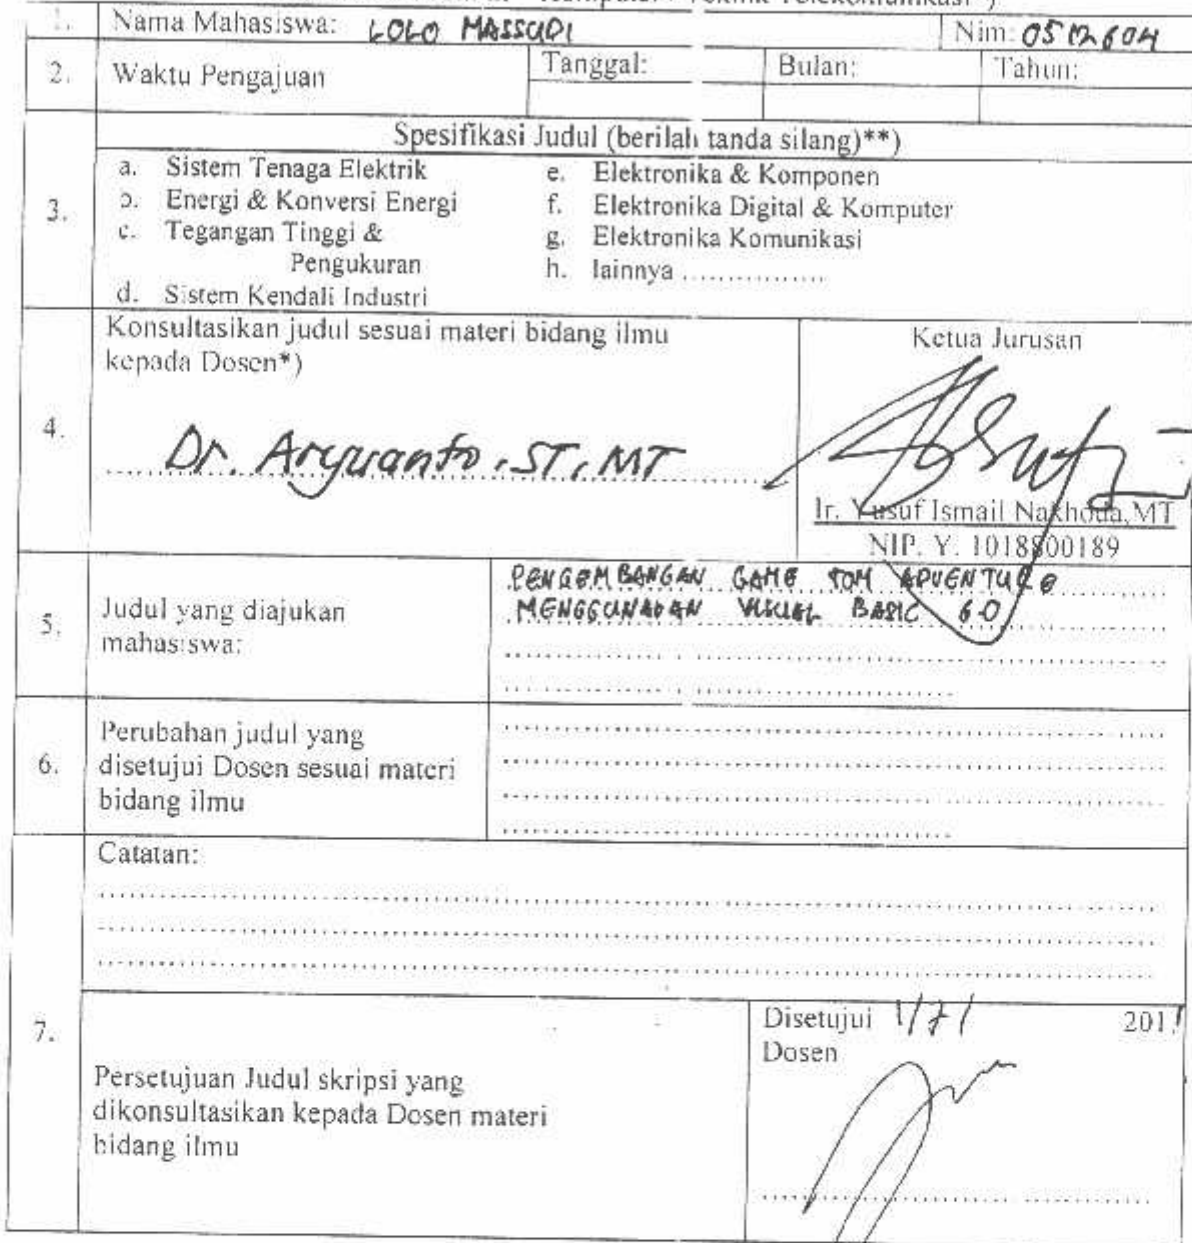 Komputer Teknik Telekomunikasi*)
1. Nama Mahasiswa: LOLO MASSUDI Nim: 0512604
2. Waktu Pengajuan Tanggal: Bulan: Tahun:
Spesifikasi Judul (berilah tanda silang)**)
3.
a. Sistem Tenaga Elektrik
b. Energi & Konversi Energi
c. Tegangan Tinggi &
Pengukuran
d. Sistem Kendali Industri
e. Elektronika & Komponen
f. Elektronika Digital & Komputer
g. Elektronika Komunikasi
h. lainnya ................
4.
Konsultasikan judul sesuai materi bidang ilmu
kepada Dosen*)
Dr. Aryuanto, ST, MT
Ketua Jurusan
Ir. Yusuf Ismail Nakhoda, MT
NIP. Y. 1018800189
5.
Judul yang diajukan
mahasiswa:
PENGEMBANGAN GAME TOM ADVENTURE
MENGGUNAKAN VISUAL BASIC 6.0
6.
Perubahan judul yang
disetujui Dosen sesuai materi
bidang ilmu
Catatan:
7.
Persetujuan Judul skripsi yang
dikonsultasikan kepada Dosen materi
bidang ilmu
Disetujui 1/7/ 2011
Dosen